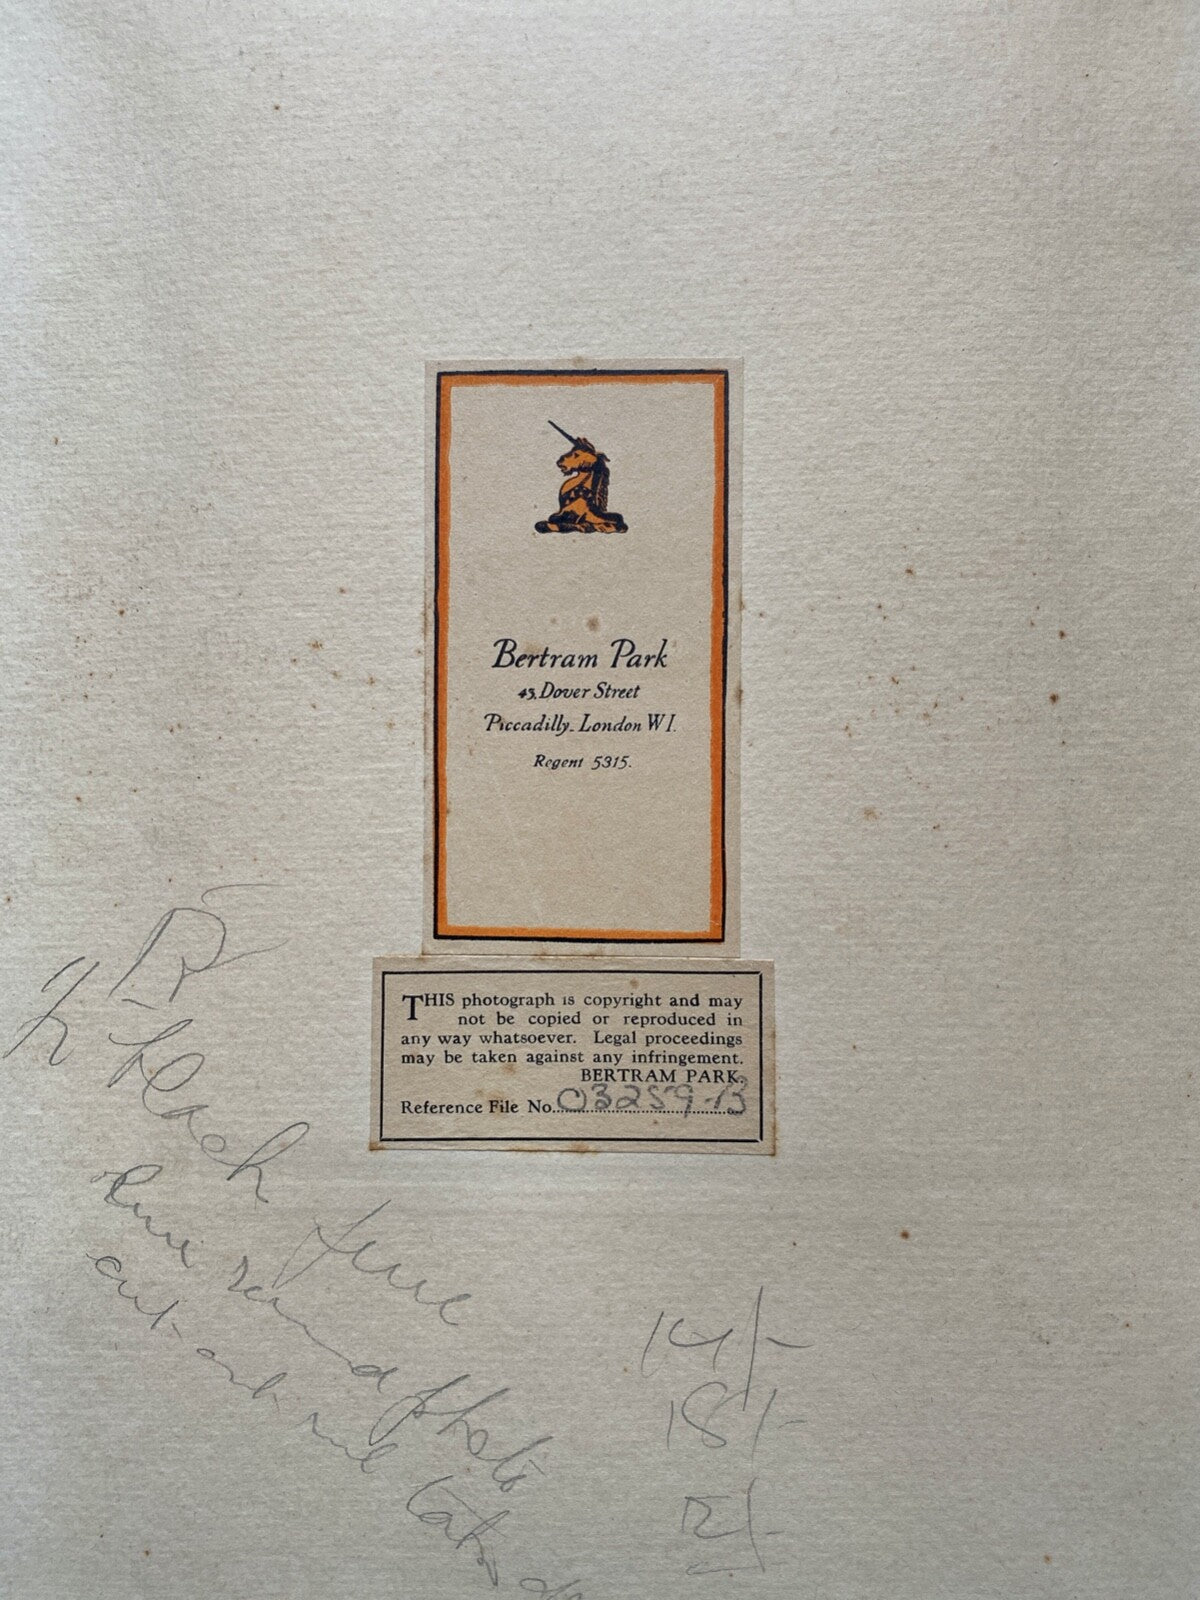 Bertram Park
43, Dover Street
Piccadilly. London W1.
Regent 5315.
THIS photograph is copyright and may
not be copied or reproduced in
any way whatsoever. Legal proceedings
may be taken against any infringement.
BERTRAM PARK.
Reference File No. 03259-B
black line
line round photo
cut out
14/-
18/-